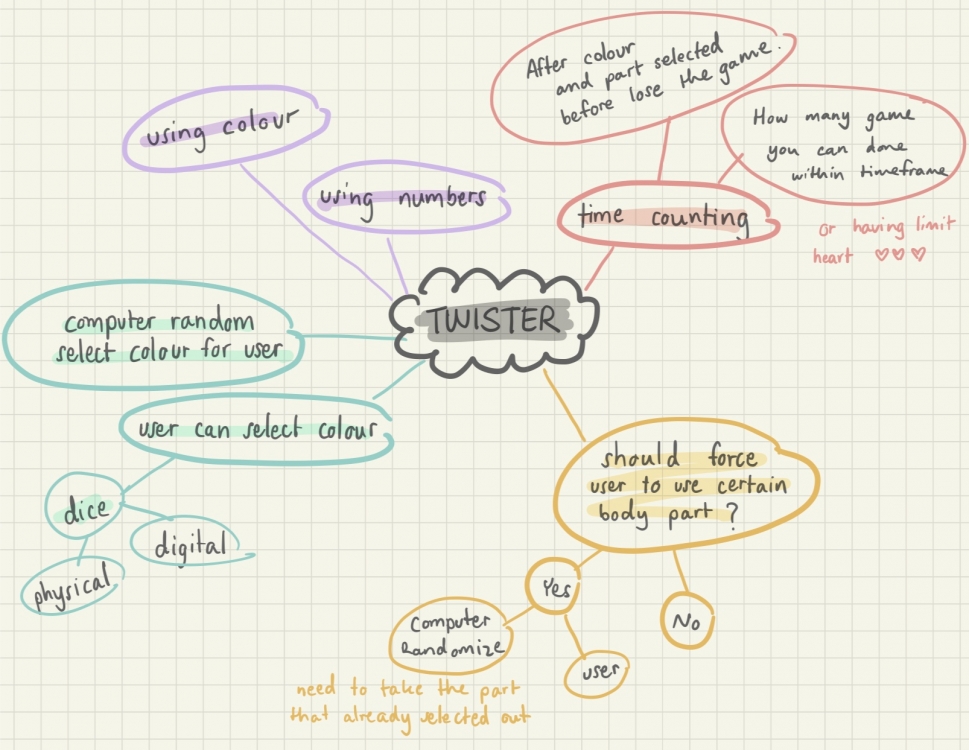 After colour
and part selected
before lose the game.
How many game
you can done
within timeframe
using colour
using numbers
time counting
or having limit
heart ♡♡♡
TWISTER
computer random
select colour for user
user can select colour
dice
digital
physical
should force
user to use certain
body part ?
Yes
No
Computer
Randomize
user
need to take the part
that already selected out